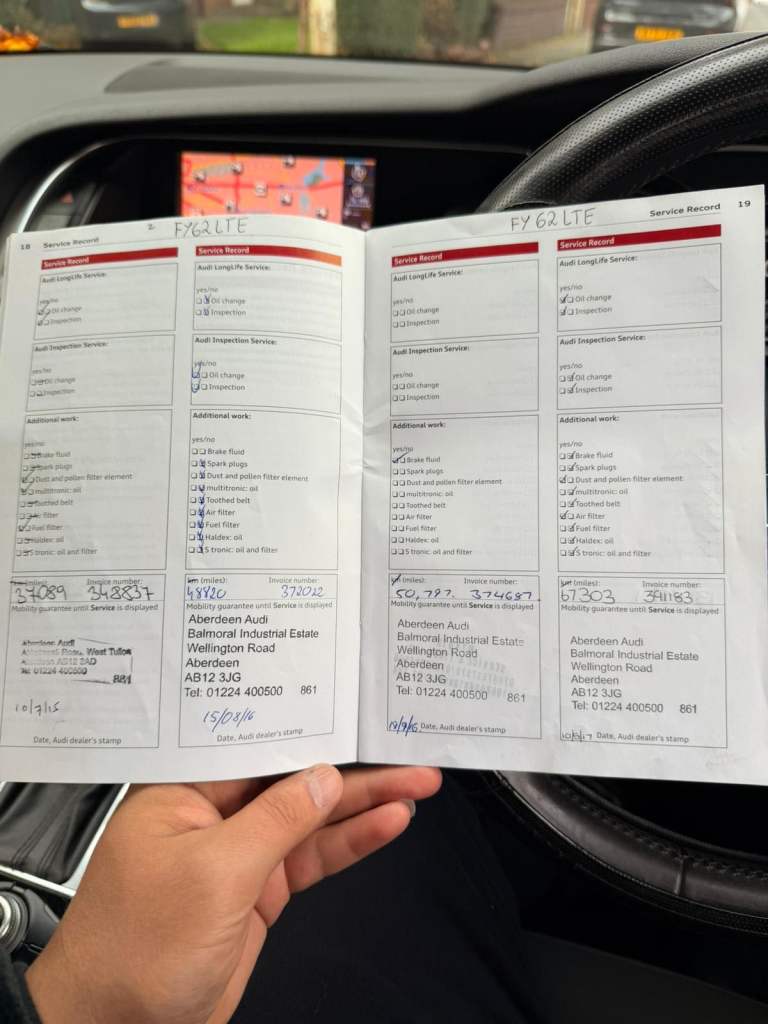 18 Service Record
2 FY62LTE
Service Record
Audi LongLife Service:
yes/no
Oil change
Inspection
Audi Inspection Service:
yes/no
Oil change
Inspection
Additional work:
yes/no
Brake fluid
Spark plugs
Dust and pollen filter element
multitronic: oil
Toothed belt
Air filter
Fuel filter
Haldex: oil
S tronic: oil and filter
km (miles): Invoice number:
37089 348837
Mobility guarantee until Service is displayed
Aberdeen Audi
Road, West Tullos
Aberdeen AB12 3AD
Tel: 01224 400500
881
10/7/15
Date, Audi dealer's stamp
Service Record
Audi LongLife Service:
yes/no
Oil change
Inspection
Audi Inspection Service:
yes/no
Oil change
Inspection
Additional work:
yes/no
Brake fluid
Spark plugs
Dust and pollen filter element
multitronic: oil
Toothed belt
Air filter
Fuel filter
Haldex: oil
S tronic: oil and filter
km (miles): Invoice number:
48820 372022
Mobility guarantee until Service is displayed
Aberdeen Audi
Balmoral Industrial Estate
Wellington Road
Aberdeen
AB12 3JG
Tel: 01224 400500 861
15/08/16
Date, Audi dealer's stamp
FY62LTE
Service Record 19
Service Record
Audi LongLife Service:
yes/no
Oil change
Inspection
Audi Inspection Service:
yes/no
Oil change
Inspection
Additional work:
yes/no
Brake fluid
Spark plugs
Dust and pollen filter element
multitronic: oil
Toothed belt
Air filter
Fuel filter
Haldex: oil
S tronic: oil and filter
km (miles): Invoice number:
50,797. 374687
Mobility guarantee until Service is displayed
Aberdeen Audi
Balmoral Industrial Estate
Wellington Road
Aberdeen
AB12 3JG
Tel: 01224 400500 861
Date, Audi dealer's stamp
Service Record
Audi LongLife Service:
yes/no
Oil change
Inspection
Audi Inspection Service:
yes/no
Oil change
Inspection
Additional work:
yes/no
Brake fluid
Spark plugs
Dust and pollen filter element
multitronic: oil
Toothed belt
Air filter
Fuel filter
Haldex: oil
S tronic: oil and filter
km (miles): Invoice number:
67303 391183
Mobility guarantee until Service is displayed
Aberdeen Audi
Balmoral Industrial Estate
Wellington Road
Aberdeen
AB12 3JG
Tel: 01224 400500 861
Date, Audi dealer's stamp